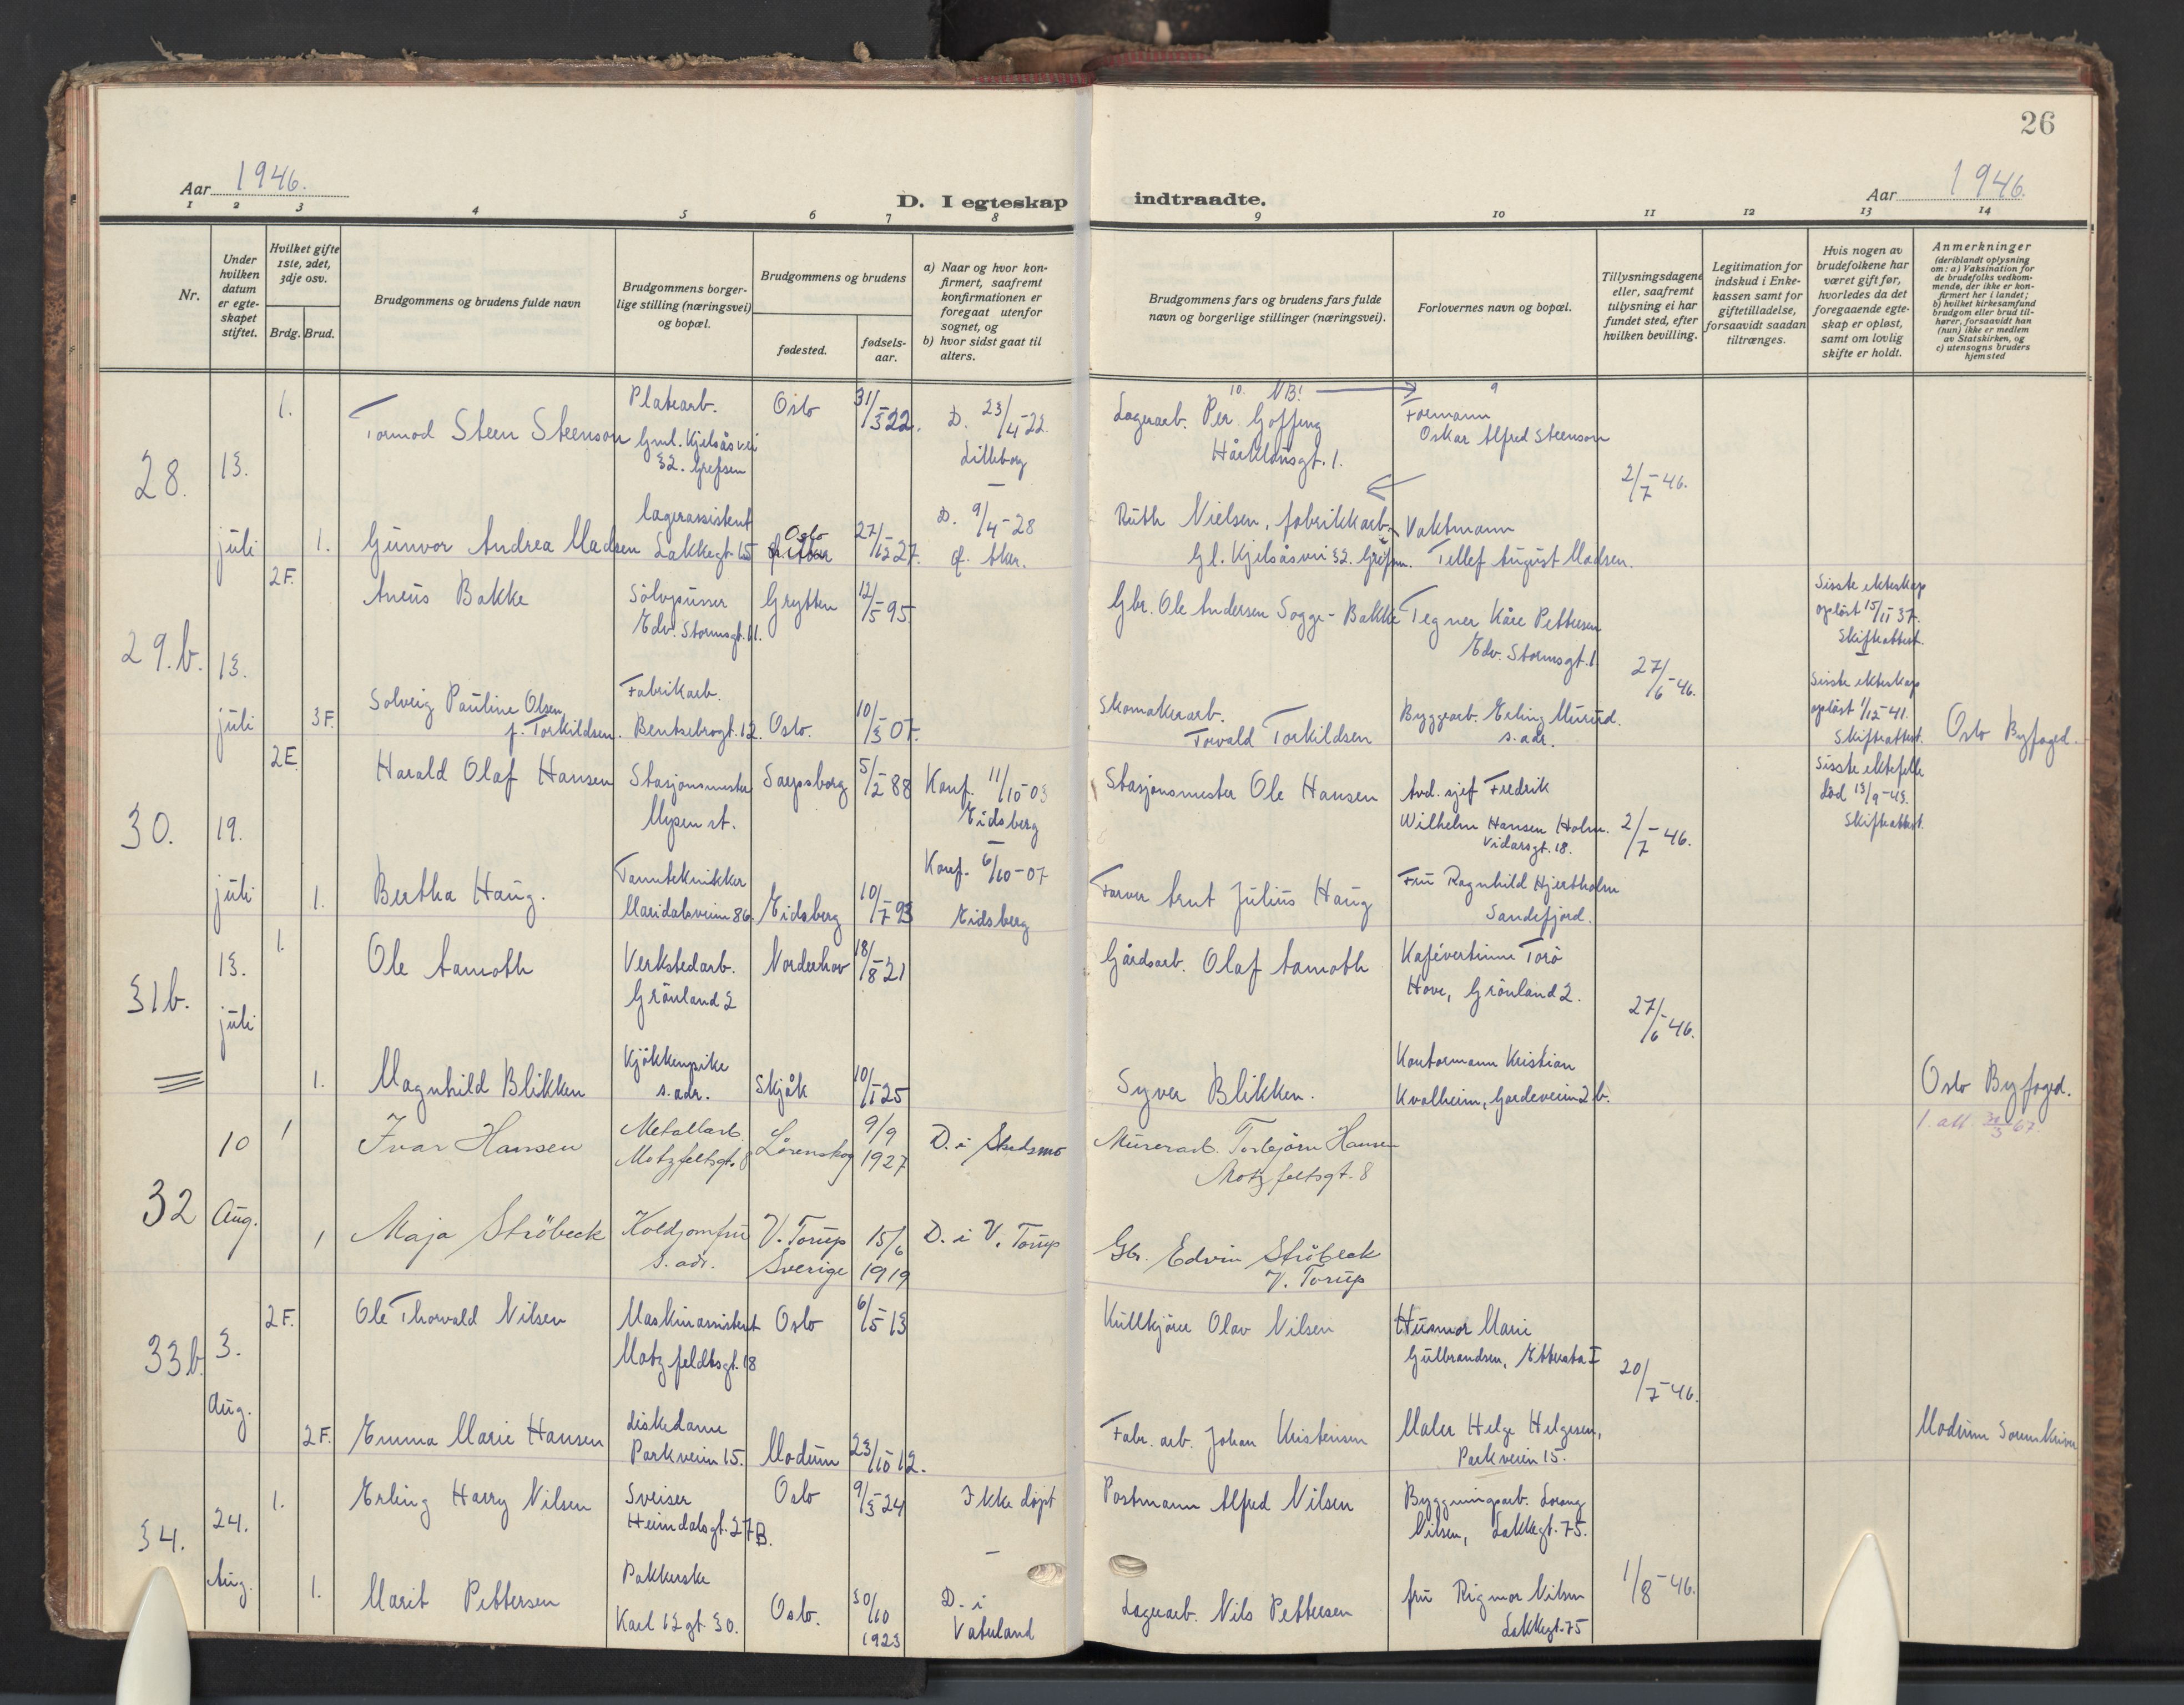 26
Aar 1946.
D. I egteskap indtraadte.
Aar 1946.
1 2 3 4 5 6 7 8 9 10 11 12 13 14
Nr.
Under hvilken datum er egteskapet stiftet.
Hvilket gifte 1ste, 2det, 3dje osv.
Brdg. Brud.
Brudgommens og brudens fulde navn
Brudgommens borgerlige stilling (næringsvei) og bopæl.
Brudgommens og brudens
fødested.
fødselsaar.
a) Naar og hvor konfirmert, saafremt konfirmationen er foregaat utenfor sognet, og
b) hvor sidst gaat til alters.
Brudgommens fars og brudens fars fulde navn og borgerlige stillinger (næringsvei).
Forlovernes navn og bopæl.
Tillysningsdagene eller, saafremt tillysning ei har fundet sted, efter hvilken bevilling.
Legitimation for indskud i Enkekassen samt for giftetilladelse, forsaavidt saadan tiltrænges.
Hvis nogen av brudefolkene har været gift før, hvorledes da det foregaaende egteskap er opløst, samt om lovlig skifte er holdt.
Anmerkninger
(deriblandt oplysning om: a) Vaksination for de brudefolks vedkommende, der ikke er konfirmert her i landet;
b) hvilket kirkesamfund brudgom eller brud tilhører, forsaavidt han (hun) ikke er medlem av Statskirken, og
c) utensogns bruders hjemsted
10 NB! 9
28. 13. juli
1. Tormod Steen Steenson
Platearb.
Gml. Kjelsåsvei
32. Grefsen
Oslo 31/3-22.
D. 23/4-22.
Lilleborg
Lagerarb. Per Goffeng
Hårklousgt. 1.
Formann
Oskar Alfred Steenson
2/7-46.
1. Gunvor Andrea Madsen
Lagerassistent
Lakkegt. 15
Oslo
27/12-27.
D. 9/4-28
g. Aker.
Ruth Nielsen, fabrikkarb.
Gl. Kjelsåsvei 32. Grefsen.
Vaktmann
Tellef August Madsen.
29.b. 13. juli
2F. Aneus Bakke
Sølvpusser
Edv. Stormsgt. 11.
Grytten 12/5-95
Gbr. Ole Andersen Sogge-Bakke
Tegner Kåre Pettersen
Edv. Stormsgt. 1
27/6-46.
Sisste ekteskap
opløst 15/11 37.
Skifteattest.
3F. Solveig Pauline Olsen
f. Torkildsen.
Fabrikarb.
Bentsebrogt. 12.
Oslo. 10/3-07.
Skomakerarb.
Torvald Torkildsen
Byggearb. Erling Murud.
s. adr.
Sisste ekteskap
opløst 1/12-41.
Skifteattest.
Oslo Byfoged.
30. 19. juli
2E. Harald Olaf Hansen
Stasjonsmester
Mysen st.
Sarpsborg 5/2-88
Konf. 11/10-03
Eidsberg
Stasjonsmester Ole Hansen
Avd. sjef Fredrik
Wilhelm Hansen Holm.
Vidarsgt. 18.
2/7-46.
Sisste ektefelle
død 13/9-43.
Skifteattest.
1. Bertha Haug.
Tannteknikker
Maridalsveien 86.
Eidsberg 10/7-93
Konf. 6/10-07
Eidsberg
Farver Arnt Julius Haug
Fru Ragnhild Hjertholm
Sandefjord.
31b. 13. juli
1. Ole Aamoth
Verkstedarb.
Grønland 2
Norderhov 18/8-21
Gårdsarb. Olaf Aamoth
Kafévertinne Torø
Hove, Grønland 2.
27/6-46.
1. Magnhild Blikken
Kjøkkenpike
s. adr.
Skjåk 10/1-25
Syver Blikken.
Kontormann Kristian
Kvalheim, Gardeveien 2b.
Oslo Byfoged.
1. att. 30/3 67.
32 10 Aug.
1 Ivar Hansen
Metallarb.
Motzfeltsgt. 8
Lørenskog 9/9 1927
D. i Skedsmo
Murerarb. Torbjørn Hansen
Motzfeltsgt. 8
1 Maja Ströbeck
Koldjomfru
s. adr.
V. Torup
Sverige
15/6 1919
D. i V. Torup
Gbr. Edvin Ströbeck
V. Torup
33b 3. Aug.
2F. Ole Thorvald Nilsen
Maskinassistent
Motzfeldtsgt. 18
Oslo 6/5-13
Kullkjører Olav Nilsen
Husmor Marie
Gulbrandsen, Etterstad I
20/7-46.
2F. Emma Marie Hansen
Diskedame
Parkveien 15.
Modum 23/10-12.
Fabr. arb. Johan Kristensen
Maler Helge Helgesen,
Parkveien 15.
Modum Sorenskriver
34. 24. Aug.
1. Erling Harry Nilsen
Sveiser
Heimdalsgt. 27B.
Oslo 9/3-24
Ikke døpt
Postmann Alfred Nilsen
Byggningsarb. Lorang
Nilsen, Lakkegt. 75.
1/8-46.
1. Marit Pettersen
Pakkerske
Karl 12 gt. 30.
Oslo. 30/10 1923
D. i
Vaterland
Lagerarb. Nils Pettersen
fru Rigmor Nilsen
Lakkegt. 75